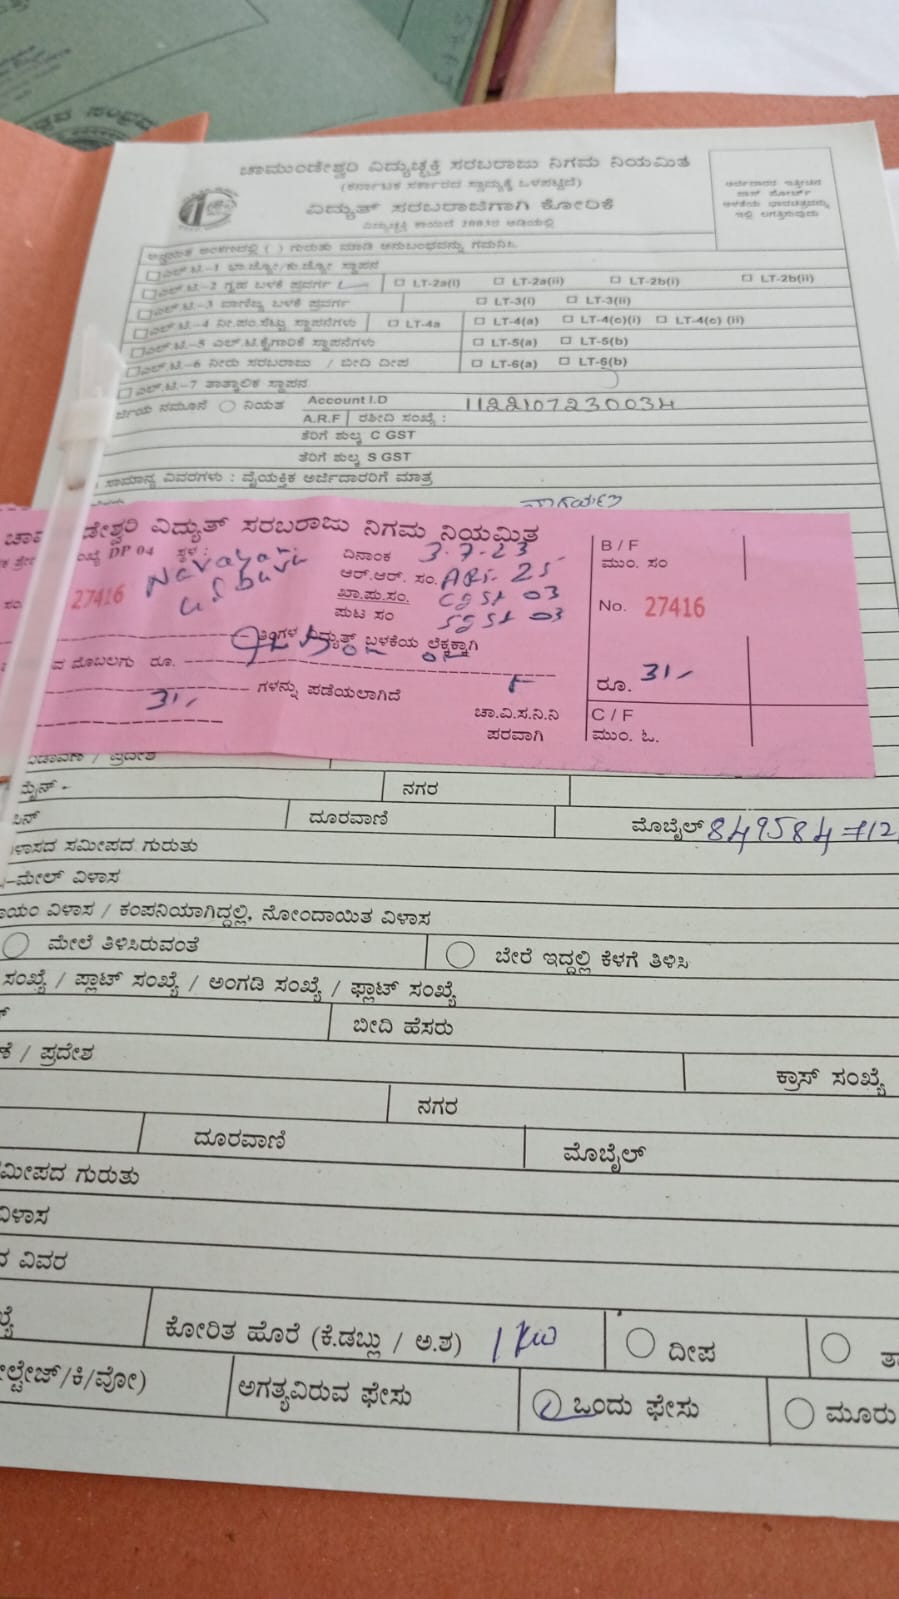 ಚಾಮುಂಡೇಶ್ವರಿ ವಿದ್ಯುಚ್ಛಕ್ತಿ ಸರಬರಾಜು ನಿಗಮ ನಿಯಮಿತ
(ಕರ್ನಾಟಕ ಸರ್ಕಾರದ ಸ್ವಾಮ್ಯಕ್ಕೆ ಒಳಪಟ್ಟಿದೆ)
ವಿದ್ಯುತ್ ಸರಬರಾಜಿಗಾಗಿ ಕೋರಿಕೆ
ವಿದ್ಯುಚ್ಛಕ್ತಿ ಕಾಯಿದೆ 2003ರ ಅಡಿಯಲ್ಲಿ
ಅನ್ವಯಿಕ ಅಂಕಣದಲ್ಲಿ ( ) ಗುರುತು ಮಾಡಿ ಅನುಬಂಧವನ್ನು ಗಮನಿಸಿ
ಎಲ್.ಟಿ.-1 ಭಾ.ಜ್ಯೋ/ಕು.ಜ್ಯೋ ಸ್ಥಾಪನ
ಎಲ್.ಟಿ.-2 ಗೃಹ ಬಳಕೆ ಪ್ರವರ್ಗ LT-2a(i) LT-2a(ii) LT-2b(i) LT-2b(ii)
ಎಲ್.ಟಿ.-3 ವಾಣಿಜ್ಯ ಬಳಕೆ ಪ್ರವರ್ಗ LT-3(i) LT-3(ii)
ಎಲ್.ಟಿ.-4 ನೀ.ಪಂ.ಸೆಟ್ಟು ಸ್ಥಾಪನೆಗಳು LT-4a LT-4(a) LT-4(c)(i) LT-4(c) (ii)
ಎಲ್.ಟಿ.-5 ಎಲ್.ಟಿ.ಕೈಗಾರಿಕೆ ಸ್ಥಾಪನೆಗಳು LT-5(a) LT-5(b)
ಎಲ್.ಟಿ.-6 ನೀರು ಸರಬರಾಜು / ಬೀದಿ ದೀಪ LT-6(a) LT-6(b)
ಎಲ್.ಟಿ.-7 ತಾತ್ಕಾಲಿಕ ಸ್ಥಾಪನ
ರ್ಜಿಯ ನಮೂನೆ ನಿಯತ Account I.D 1122107230034
A.R.F ರಶೀದಿ ಸಂಖ್ಯೆ :
ತೆರಿಗೆ ಶುಲ್ಕ C GST
ತೆರಿಗೆ ಶುಲ್ಕ S GST
ಸಾಮಾನ್ಯ ವಿವರಗಳು : ವೈಯಕ್ತಿಕ ಅರ್ಜಿದಾರರಿಗೆ ಮಾತ್ರ
ಡೇಶ್ವರಿ ವಿದ್ಯುತ್ ಸರಬರಾಜು ನಿಗಮ ನಿಯಮಿತ
DP 04 ಸ್ಥಳ : ದಿನಾಂಕ 3-7-23 B / F
ಮುಂ. ಸಂ
27416 ಆರ್.ಆರ್. ಸಂ. ARF- 25-
ಖಾ.ಪು.ಸಂ. CgST 03 No. 27416
ಪುಟ ಸಂ SgST 03
ತಿಂಗಳ ವಿದ್ಯುತ್ ಬಳಕೆಯ ಲೆಕ್ಕಕ್ಕಾಗಿ
ವ ಮೊಬಲಗು ರೂ. ರೂ. 31/-
31/- ಗಳನ್ನು ಪಡೆಯಲಾಗಿದೆ
ಚಾ.ವಿ.ಸ.ನಿ.ನಿ C / F
ಪರವಾಗಿ ಮುಂ. ಓ.
ಬಡಾವಣೆ / ಪ್ರದೇಶ
ಮೈನ್ - ನಗರ
ದೂರವಾಣಿ ಮೊಬೈಲ್
ಳಾಸದ ಸಮೀಪದ ಗುರುತು
-ಮೇಲ್ ವಿಳಾಸ
ಾಯಂ ವಿಳಾಸ / ಕಂಪನಿಯಾಗಿದ್ದಲ್ಲಿ, ನೋಂದಾಯಿತ ವಿಳಾಸ
ಮೇಲೆ ತಿಳಿಸಿರುವಂತೆ ಬೇರೆ ಇದ್ದಲ್ಲಿ ಕೆಳಗೆ ತಿಳಿಸಿ
ಸಂಖ್ಯೆ / ಪ್ಲಾಟ್ ಸಂಖ್ಯೆ / ಅಂಗಡಿ ಸಂಖ್ಯೆ / ಫ್ಲಾಟ್ ಸಂಖ್ಯೆ
ಬೀದಿ ಹೆಸರು
ಕೆ / ಪ್ರದೇಶ ಕ್ರಾಸ್ ಸಂಖ್ಯೆ
ನಗರ
ದೂರವಾಣಿ ಮೊಬೈಲ್
ಮೀಪದ ಗುರುತು
ವಿಳಾಸ
ದ ವಿವರ
ಖ್ಯೆ ಕೋರಿತ ಹೊರೆ (ಕೆ.ಡಬ್ಲು / ಅ.ಶ) 1 KW ದೀಪ
ಲ್ಟೇಜ್/ಕಿ/ವೋ) ಅಗತ್ಯವಿರುವ ಫೇಸು ಒಂದು ಫೇಸು ಮೂರು